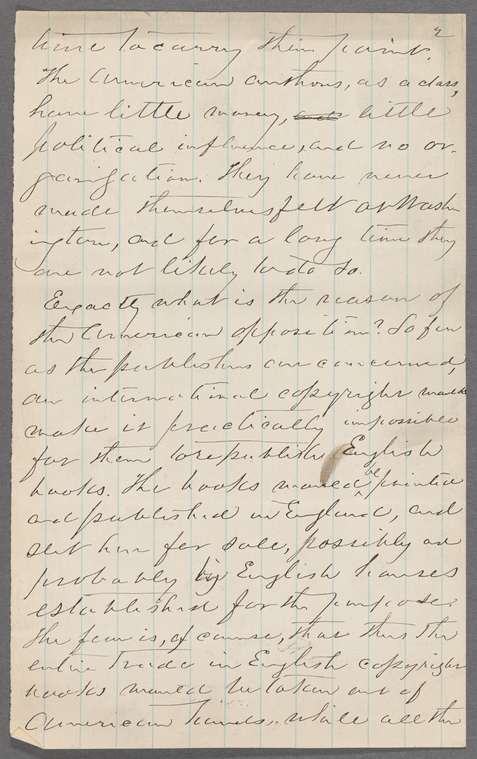 2
time to carry their point.
The American authors, as a class,
have little money, and little
political influence, and no or-
ganization. They have never
made themselves felt at Wash-
ington, and for a long time they
are not likely to do so.
Exactly what is the reason of
the American opposition? So far
as the publishers are concerned,
an international copyright would
make it practically impossible
for them to republish English
books. The books would be printed
and published in England, and
sent here for sale, possibly and
probably by English houses
established for the purpose.
The fear is, of course, that thus the
entire trade in English copyright
books would be taken out of
American hands, while all the